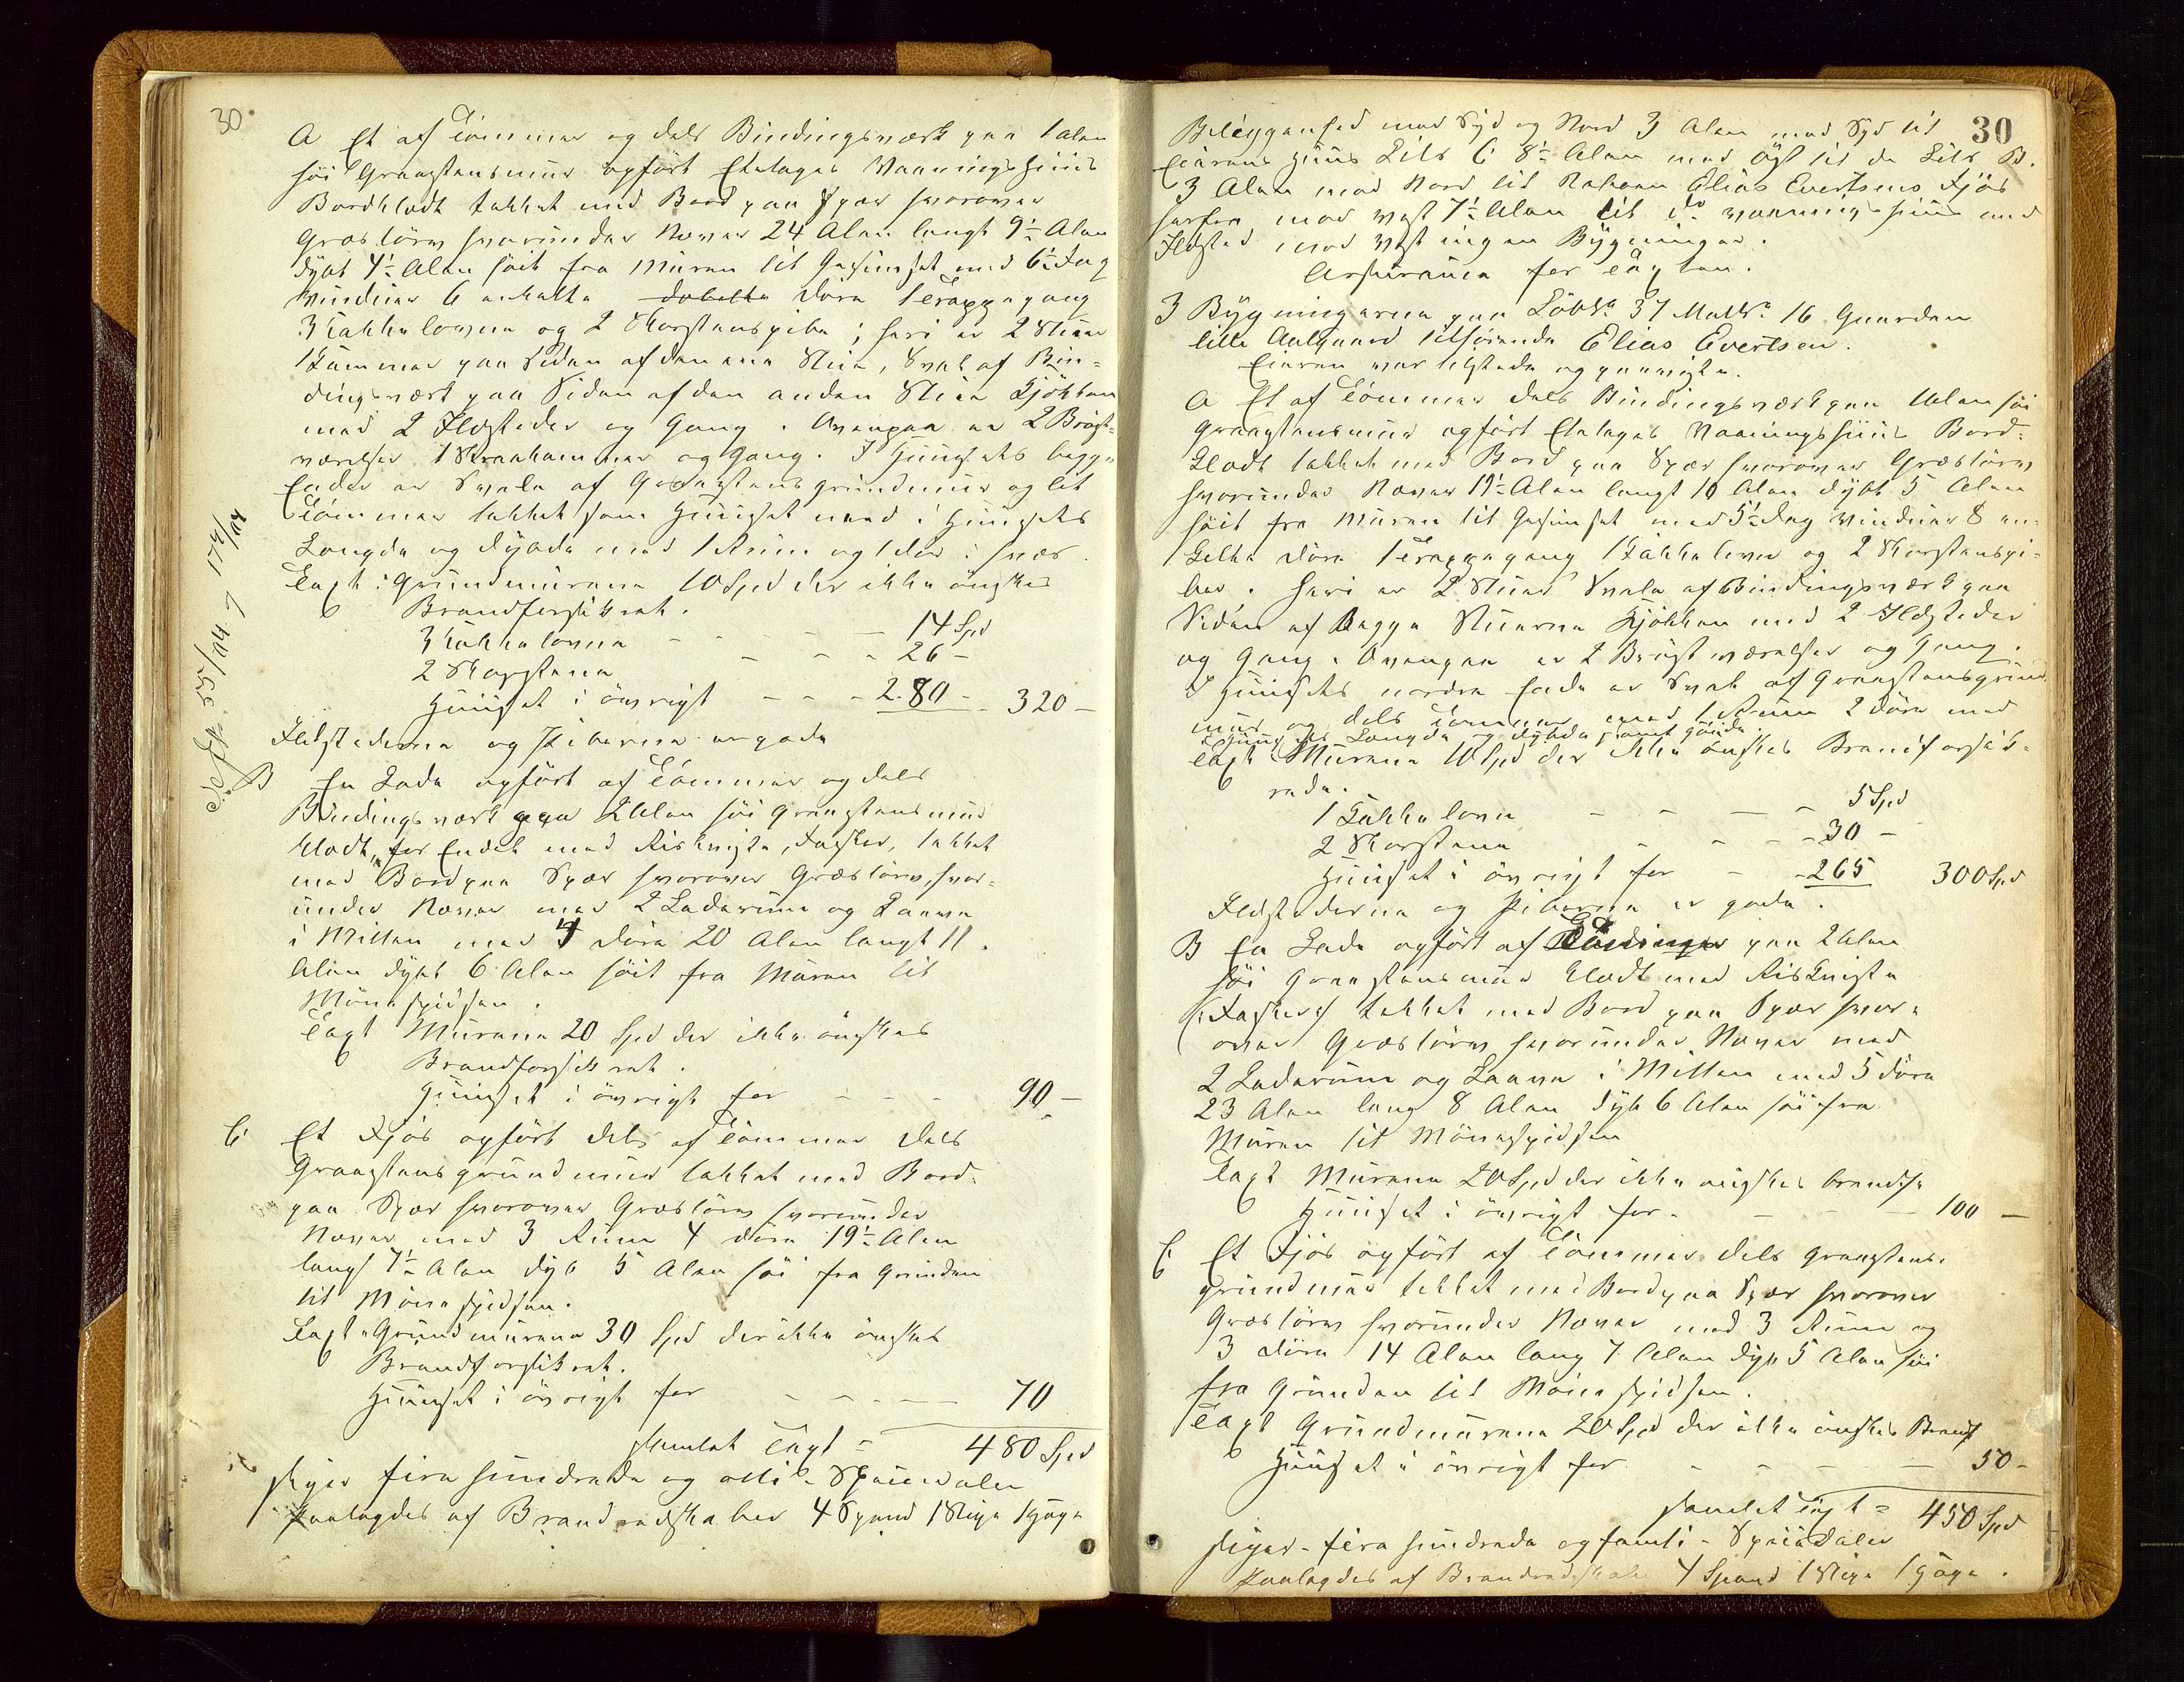 30.
A Et af Tømmer og dels Bindingsværk paa 1 Alen
høi Graastensmuur opført Etetages Vaaningshuus
Bordklædt takket med Bord paa Spær hvorover
Græstørv hvorunder Næver 24 Alen langt 9½ Alen
dybt 4½ Alen høit fra Muren til Gesimset med 6½ Fag
Vinduer 6 enkelte dobelte Døre 1 Trappegang
3 Kakkelovne og 2 Skorstenspibe; heri er 2 Stuer
1 Kammer paa Siden af den ene Stue, Sval af Bin-
dingsværk paa Siden af den anden Stue Kjøkken
med 2 Ildsteder og Gang. Ovenpaa er 2 Bryst-
værelser 1 Skraakammer og Gang. I Huusets begge
Ender er Svale af Graastens grundmuur og lit
Tømmer takket som Huuset med i Huusets
Længde og dybde med 1 Ruum og 1 Dør i hver.
Taxt: Grundmurene 10 Spd der ikke ønskes
Brandforsikret.
3 Kakkelovne - - - - 14 Spd
2 Skorstene - - - 26 -
Huuset i øvrigt - - - 280 - 320 -
Ildstederne og Piberne er gode
B En Lade opført af Tømmer og dels
Bindingsværk paa 2 Alen høi Graastensmuur
klædt, for Endel med Riskviste, Fasker, takket
med Bord paa Spær hvorover Græstørv, hvor-
under Næver med 2 Laderum og Laave
i Mitten med 4 Døre 20 Alen langt 11
Alen dybt 6 Alen høit fra Muren til
Mønespidsen.
Taxt Murene 20 Spd der ikke ønskes
Brandforsikret.
Huuset i øvrigt for - - - 90 -
C Et Fjøs opført dels af Tømmer dels
Graastensgrundmuur takket med Bord
paa Spær hvorover Græstørv hvorunder
Næver med 3 Ruum 4 Døre 19½ Alen
langt 7½ Alen dyb 5 Alen høi fra Grunden
til Mønespidsen.
Taxt Grundmurene 30 Spd der ikke ønskes
Brandforsikret.
Huuset i øvrigt for - - - - 70
Samlet Taxt = 480 Spd
siger fire hundrede og otti - Speciedaler
Paalagdes af Brandredskaber 4 Spand 1 Stige 1 Hage
30
Beliggenhed mod Syd og Nord 3 Alen mod Syd til
Eierens Huus Litr C 8½ Alen mod Øst til do Litr B.
3 Alen mod Nord til Naboen Elias Evertsens Fjøs
herfra mod Vest 7½ Alen til do Vaaningshuus med
Ildsted mod Vest ingen Bygninger.
Assurance før Taxten.
3 Bygningerne paa LøbN 37 MatrN 16 Gaarden
lille Aalgaard tilhørende Elias Evertsen.
Eieren var tilstede og paaviste.
A Et af Tømmer dels Bindingsværk paa 1 Alen høi
Graastensmuur opført Etetages Vaaningshuus Bord-
klædt takket med Bord paa Spær hvorover Græstørv
hvorunder Næver 19½ Alen langt 10 Alen dybt 5 Alen
høit fra Muren til Gesimset med 5½ Fag Vinduer 8 en-
kelte Døre 1 Trappegang 1 Kakkelovn og 2 Skorstenspi-
ber. heri er 2 Stuer Svale af Bindingsværk paa
Siden af begge Stuerne Kjøkken med 2 Ildsteder
og Gang. Ovenpaa er 2 Brystværelser og Gang.
I Huusets nordre Ende er Sval af Graastensgrund
muur og dels Tømmer med 1 Ruum 2 Døre med
Huusets Længde og dybde samt Høide.
Taxt Murene 10 Spd der ikke ønskes Brandforsik-
rede.
1 Kakkelovn - - - - 5 Spd
2 Skorstene - - - 30 -
Huuset i øvrigt for - - 265 300 Spd
Ildstederne og Piberne er gode.
B En Lade opført af paa 2 Alen
høi Graastensmuur klædt med Riskviste
(Fasker) takket med Bord paa Spær hvor-
over Græstørv hvorunder Næver med
2 Laderum og Laave i Mitten med 5 Døre
23 Alen lang 8 Alen dyb 6 Alen høi fra
Muren til Mønespidsen
Taxt Murene 20 Spd der ikke ønskes brandf.
Huuset i øvrigt for - - - - 100 -
C Et Fjøs opført af Tømmer dels Graastens-
grundmuur takket med Bord paa Spær hvorover
Græstørv hvorunder Næver med 3 Ruum og
3 Døre 14 Alen lang 7 Alen dyb 5 Alen høi
fra Grunden til Mønespidsen.
Taxt Grundmurene 20 Spd der ikke ønskes Brandf
Huuset i øvrigt for - - - - 50 -
Samlet Taxt = 450 Spd
siger - fire hundrede og femti - Speciedaler
Paalagdes af Brandredskaber 4 Spand 1 Stige 1 Hage.